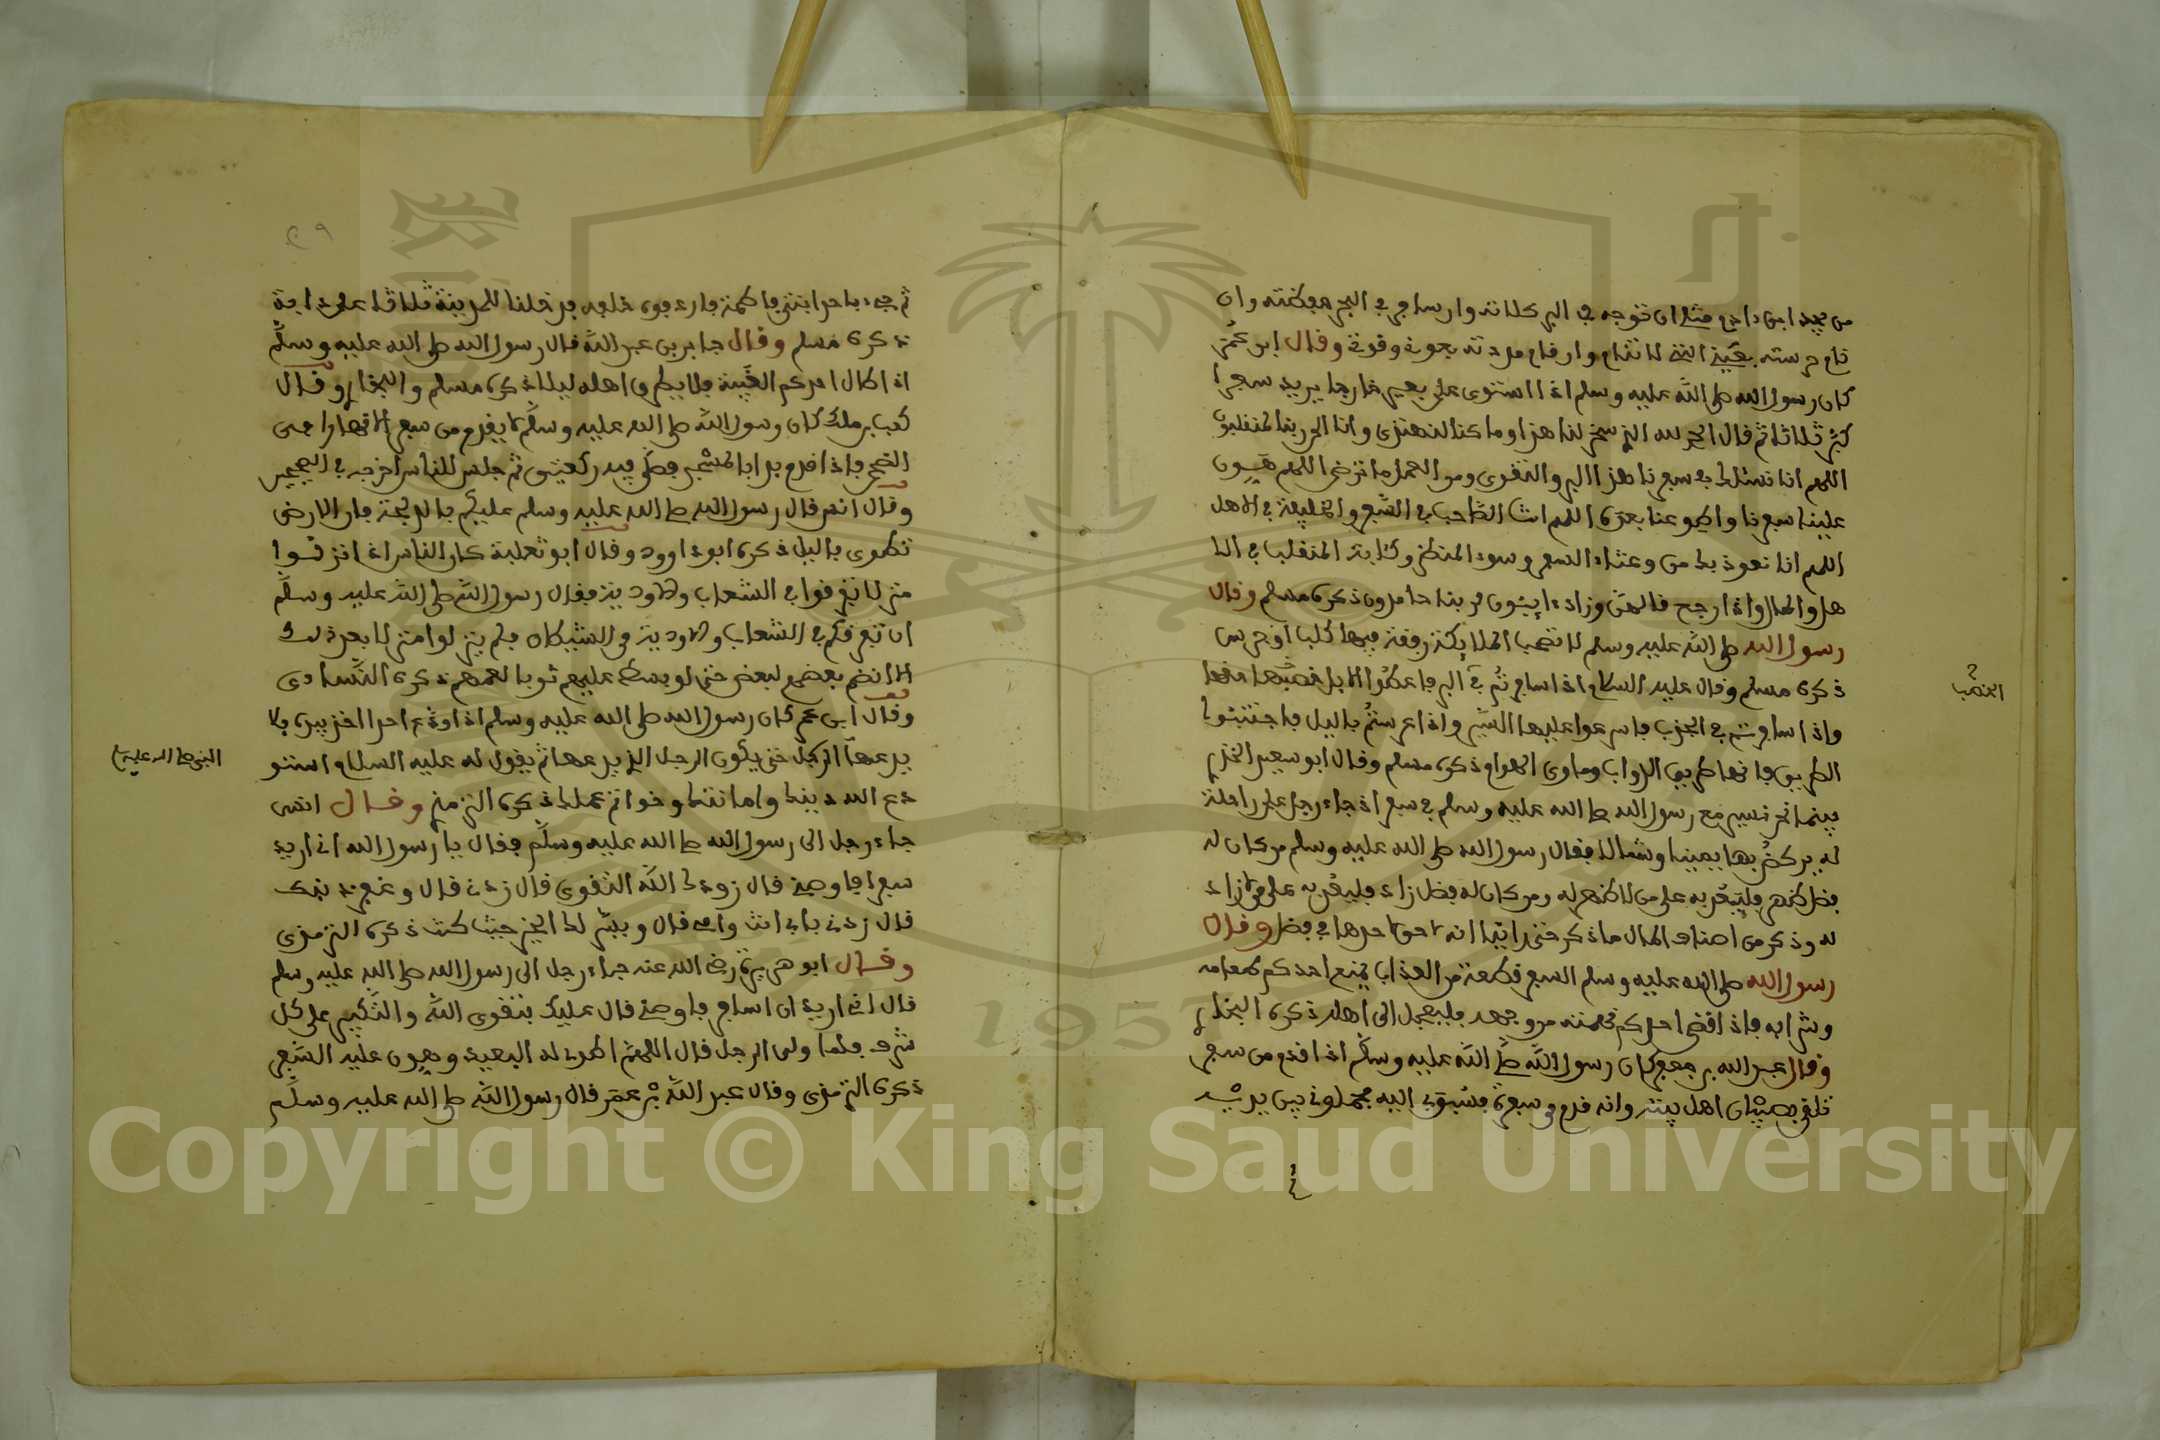 من مجيد ابن داده مثله ان توجه في البر كلاته وان سافر في البحر وان
نام حرسته بعين التي لا تنام وان قام بحوله وقوته وقال ابن عمر
كان رسول الله صلى الله عليه وسلم اذا استوى على بعيره خارجا يريد سفرا
كبر ثلاثا ثم قال الحمد لله الذي سخر لنا هذا وما كنا له مقرنين وانا الى ربنا لمنقلبون
اللهم انا نسئلك في سفرنا هذا البر والتقوى ومن العمل ما ترضى اللهم هون
علينا سفرنا واطو عنا بعده اللهم انت الصاحب في السفر والخليفة في الاهل
اللهم انا نعوذ بك من وعثاء السفر وسوء المنظر وكابة المنقلب في الا
هل والمال واذا رجع قالهن وزاد ايبون لربنا حامدون ذكره مسلم وقال
رسول الله صلى الله عليه وسلم لا تصحب الملايكة رفقة فيها كلب او جرس
ذكره مسلم وقال عليه السلام اذا سافرتم في البر فاعطوا الابل حظها
واذا سافرتم في الجدب فاسرعوا عليها السير واذا عرستم باليل فاجتنبوا
الطريق فانها طريق الدواب وماوى الهوام ذكره مسلم وقال ابو سعيد الخدري
بينما نحن نسير مع رسول الله صلى الله عليه وسلم في سفر اذ جاء رجل على راحلة
له يركض بها يمينا وشمالا فقال رسول الله صلى الله عليه وسلم من كان له
فضل ظهر فليعد به على من لا ظهر له ومن كان له فضل زاد فليعد به على من لا زاد
له وذكر من اصناف المال ما ذكر حتى راينا انه لا حق لاحد منا في فضل وقال
رسول الله صلى الله عليه وسلم السفر قطعة من العذاب يمنع احدكم طعامه
وشرابه فاذا قضى احدكم نهمته من وجهه فليعجل الى اهله ذكره البخاري
وقال عبد الله بن جعفر كان رسول الله صلى الله عليه وسلم اذا قدم من سفر
تلقي بصبيان اهل بيته وانه قدم من سفره فسبق بي اليه فحملني بين يديه
الخصب
ثم جيء باحد ابني فاطمة فاردفه خلفه فدخلنا المدينة ثلاثا على دابة
ذكره مسلم وقال جابر بن عبد الله قال رسول الله صلى الله عليه وسلم
اذا طال احدكم الغيبة فلا يطرق اهله ليلا ذكره مسلم والبخاري وقال
كعب بن ملك كان رسول الله صلى الله عليه وسلم لا يقدم من سفر الا نهارا في
الضحى فاذا قدم بدا بالمسجد فصلى فيه ركعتين ثم جلس للناس اخرجه في الصحيح
وقال انس قال رسول الله صلى الله عليه وسلم عليكم بالدلجة فان الارض
تطوى باليل ذكره ابو داوود وقال ابو ثعلبة كان الناس اذا نزلوا
منزلا تفرقوا في الشعاب والاودية فقال رسول الله صلى الله عليه وسلم
ان تفرقكم في الشعاب والاودية من الشيطان فلم ينزلوا منزلا بعد ذلك
الا انضم بعضهم لبعض حتى لو بسط عليهم ثوب لعمهم ذكره النساءي
وقال ابن عمر كان رسول الله صلى الله عليه وسلم اذا ودع احدا اخذ بيده فلا
يدعها الرجل حتى يكون الرجل الذي يدعها ثم يقول له عليه السلام استو
دع الله دينك وامانتك وخواتم عملك ذكره الترمذي وقال انس
جاء رجل الى رسول الله صلى الله عليه وسلم فقال يا رسول الله اني اريد
سفرا فاوصني قال زودك الله التقوى قال زدني قال وغفر ذنبك
قال زدني بابي انت وامي قال ويسر لك الخير حيث كنت ذكره الترمذي
وقال ابو هريرة رضي الله عنه جاء رجل الى رسول الله صلى الله عليه وسلم
قال اني اريد ان اسافر فاوصني قال عليك بتقوى الله والتكبير على كل
شرف فلما ولى الرجل قال اللهم اطو له البعيد وهون عليه السفر
ذكره الترمذي وقال عبد الله بن عمر قال رسول الله صلى الله عليه وسلم
النبي صلى الله عليه
Copyright © King Saud University
1957